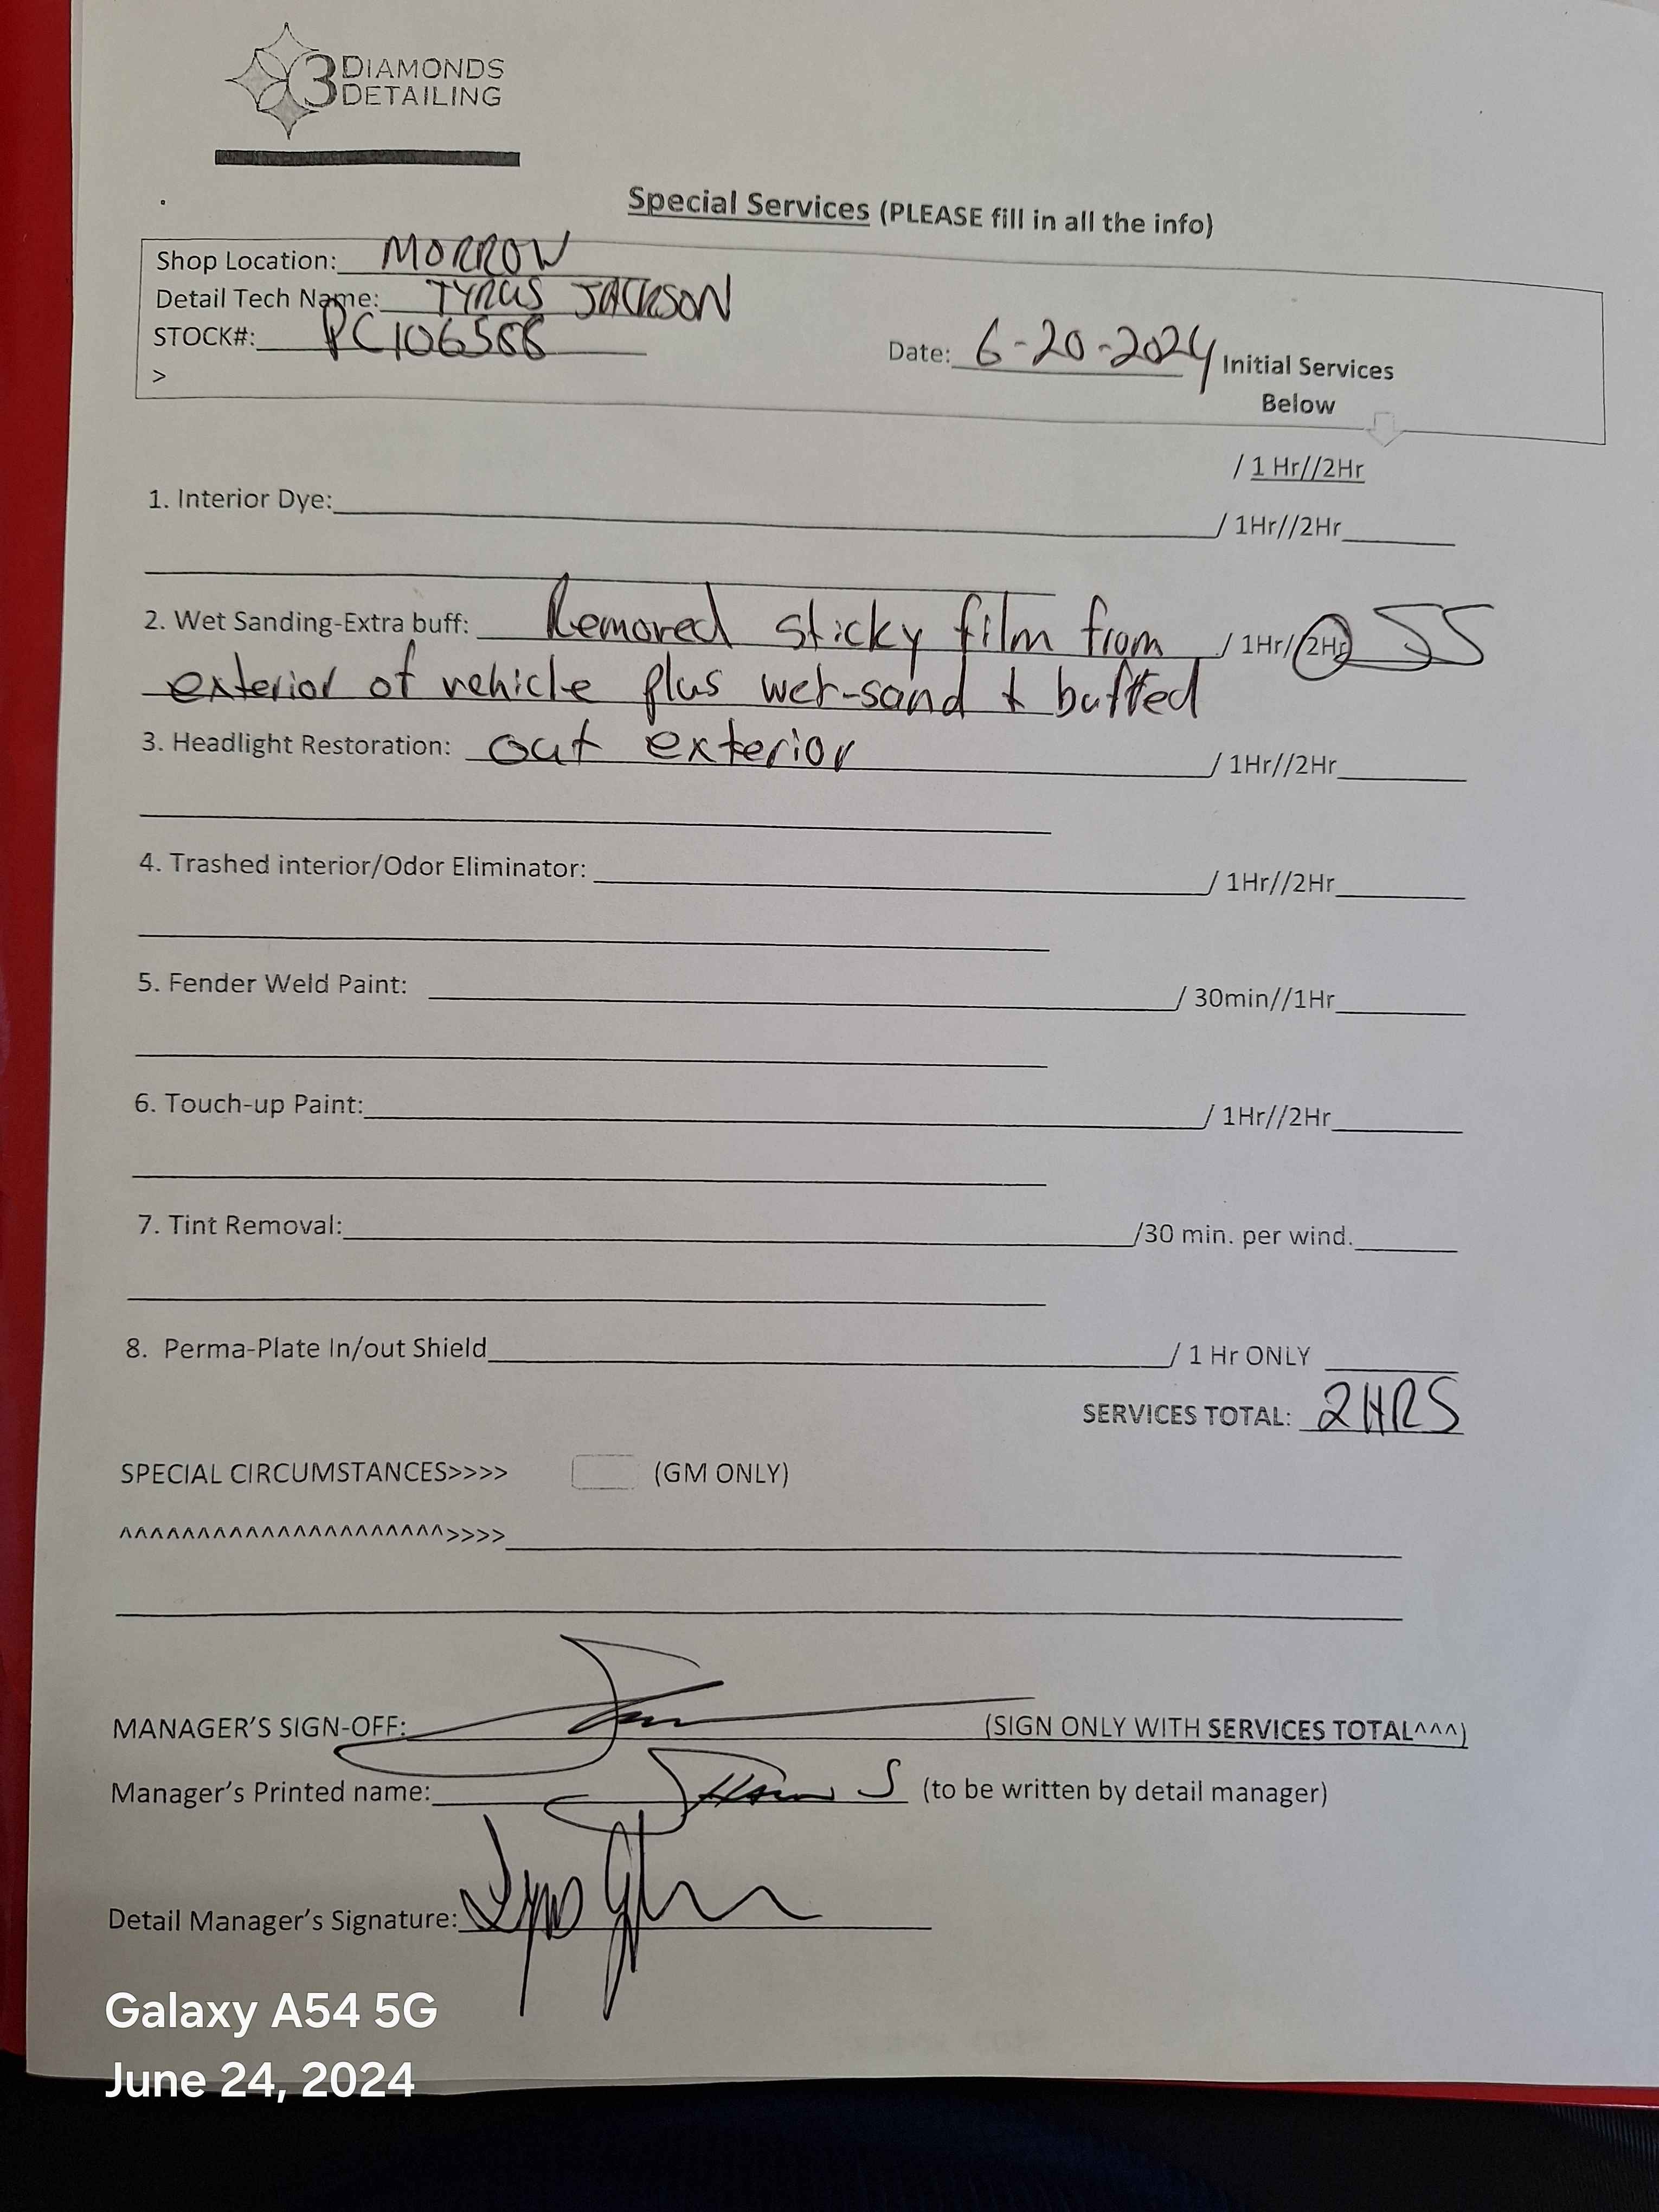 3 DIAMONDS
DETAILING
Special Services (PLEASE fill in all the info)
Shop Location: MORROW
Detail Tech Name: TYRUS JACKSON
STOCK#: PC106588
Date: 6-20-2024 Initial Services
Below
>
/ 1 Hr//2Hr
1. Interior Dye: / 1Hr//2Hr
2. Wet Sanding-Extra buff: Removed sticky film from / 1Hr/ 2Hr JS
exterior of vehicle plus wet-sand + buffed
3. Headlight Restoration: out exterior / 1Hr//2Hr
4. Trashed interior/Odor Eliminator: / 1Hr//2Hr
5. Fender Weld Paint: / 30min//1Hr
6. Touch-up Paint: / 1Hr//2Hr
7. Tint Removal: /30 min. per wind.
8. Perma-Plate In/out Shield / 1 Hr ONLY
SERVICES TOTAL: 2HRS
SPECIAL CIRCUMSTANCES>>>> (GM ONLY)
^^^^^^^^^^^^^^^^^^^^^>>>>
MANAGER'S SIGN-OFF: (SIGN ONLY WITH SERVICES TOTAL^^^)
Manager's Printed name: S (to be written by detail manager)
Detail Manager's Signature:
Galaxy A54 5G
June 24, 2024